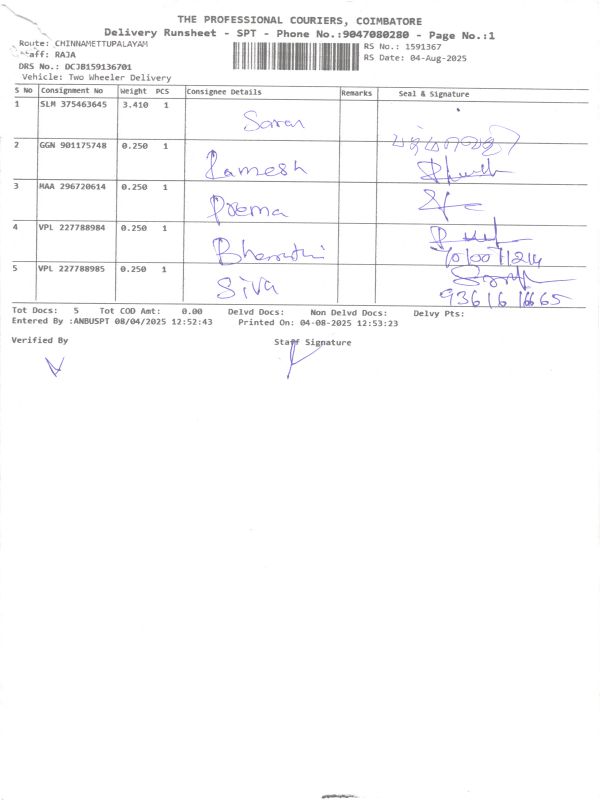 THE PROFESSIONAL COURIERS, COIMBATORE
Delivery Runsheet - SPT - Phone No.:9047080280 - Page No.:1
Route: CHINNAMETTUPALAYAM
RS No.: 1591367
Staff: RAJA
RS Date: 04-Aug-2025
DRS No.: DCJB159136701
Vehicle: Two Wheeler Delivery
S No Consignment No Weight PCS Consignee Details Remarks Seal & Signature
1 SLM 375463645 3.410 1
Saran
2 GGN 901175748 0.250 1
Ramesh
3 MAA 296720614 0.250 1
Prema
4 VPL 227788984 0.250 1
5 VPL 227788985 0.250 1
Siva
Tot Docs: 5 Tot COD Amt: 0.00 Delvd Docs: Non Delvd Docs: Delvy Pts:
Entered By :ANBUSPT 08/04/2025 12:52:43 Printed On: 04-08-2025 12:53:23
Verified By Staff Signature